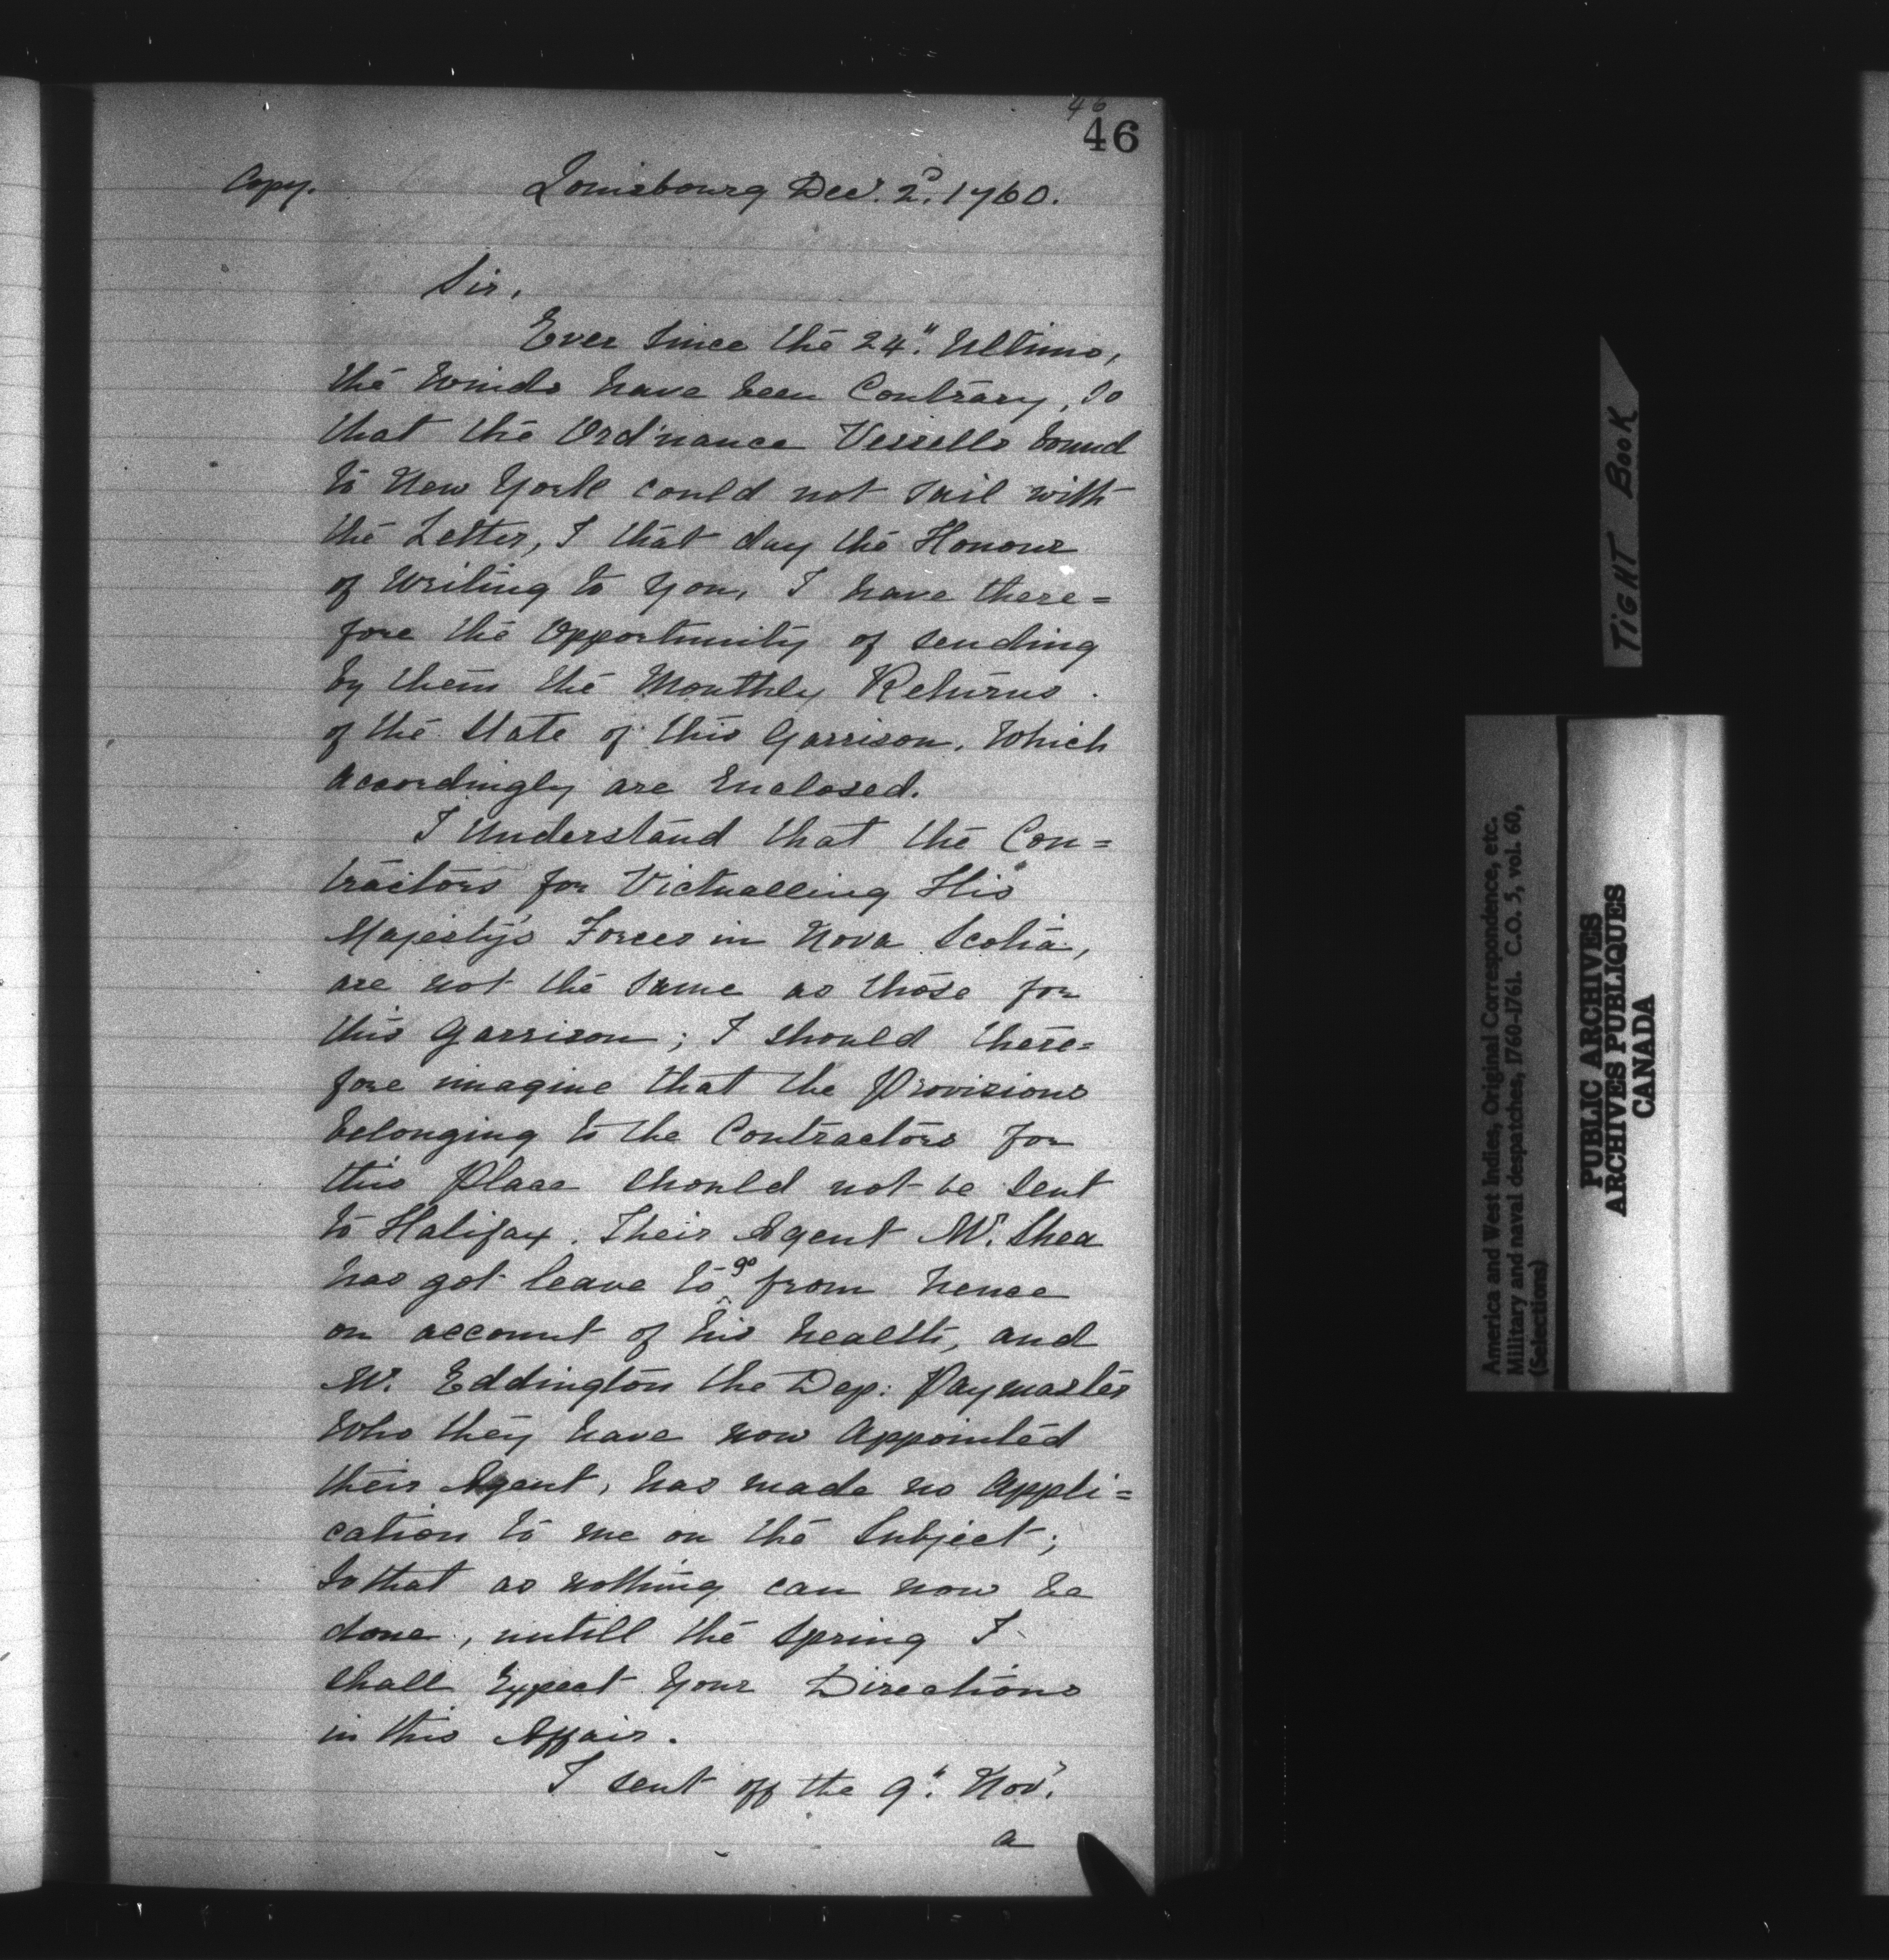 46
46
Copy. Louisbourg Decr. 2d. 1760.
Sir,
Ever Since the 24". Ultimo,
the Winds have been Contrary, So
that the Ord'nance Vessells bound
to New York could not sail with
the Letter, I that day the Honour
of Writing to You, I have there=
fore the Opportunity of sending
by them the Monthly Returns
of the State of this Garrison, Which
Accordingly are Enclosed.
I Understand that the Con=
tractors for Victualling His
Majesty's Forces in Nova Scotia,
are not the Same as those for
this Garrison; I should there=
fore imagine that the Provisions
belonging to the Contractors for
this Place should not be Sent
to Halifax. Their Agent Mr. Shea
has got leave to go from hence
on account of his health, and
Mr. Eddington the Dep: Paymaster
Who they have now Appointed
their Agent, has made no Appli=
cation to me on the Subject;
So that as nothing can now be
done, untill the Spring I
shall Expect Your Directions
in this Affair.
I sent off the 9". Novr.
a
TIGHT BOOK
America and West Indies, Original Correspondence, etc.
Military and naval despatches, 1760-1761. C.O. 5, vol. 60,
(Selections)
PUBLIC ARCHIVES
ARCHIVES PUBLIQUES
CANADA